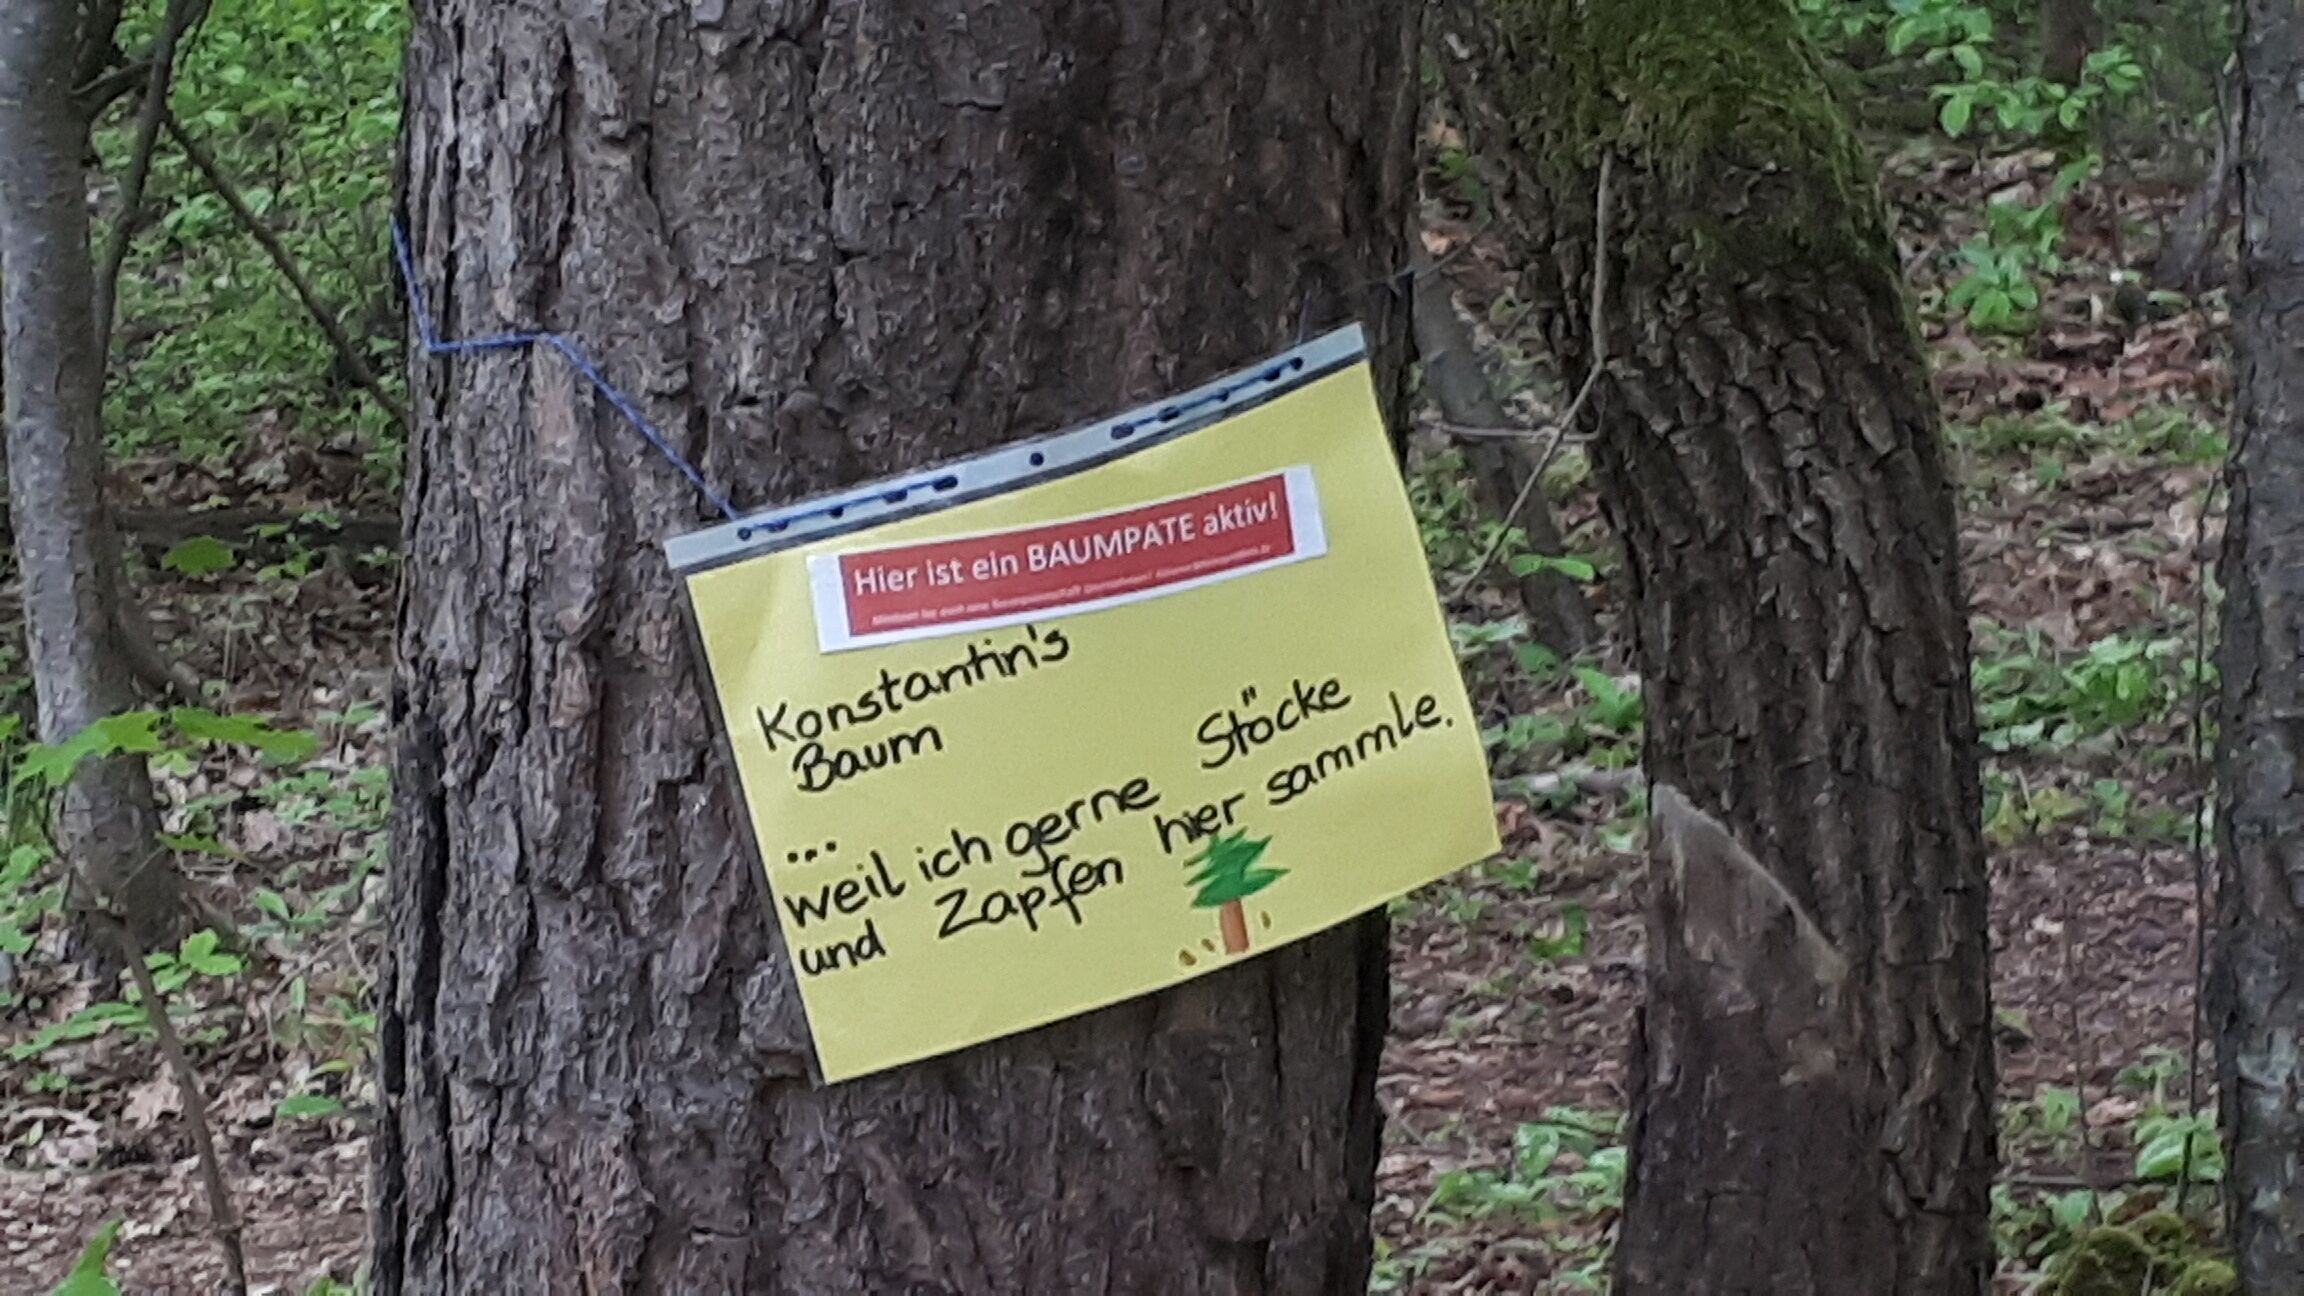 Hier ist ein BAUMPATE aktiv!
Konstantin's
Baum
...
weil ich gerne Stöcke
und Zapfen hier sammle.